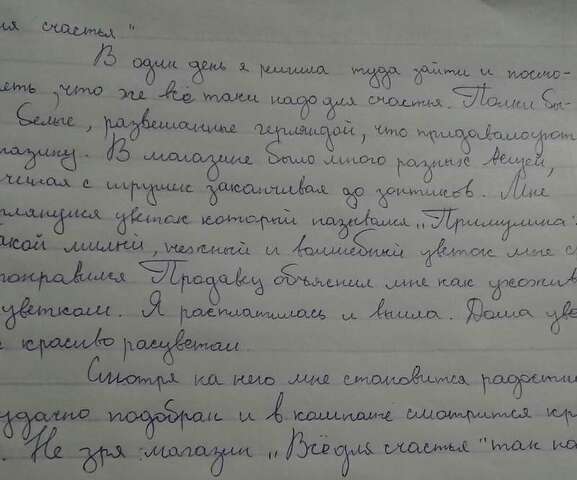 ия счастья"
В один день я решила туда зайти и посмо-
еть, что же всё таки надо для счастья. Полки бы-
белые, развешанные герляндой, что придавало уют
газину. В магазине было много разных вещей,
чиная с игрушек заканчивая до зонтиков. Мне
глянулся цветок который назывался „Примулина"
акой милый, нежный и волшебный цветок мне
понравился Продавец объяснил мне как ухожив
цветком. Я расплатилась и вышла. Дома цве
красиво расцветал.
Смотря на него мне становится радостн
удачно подобран и в компане смотрится кр
. Не зря магазин „Всё для счастья" так на